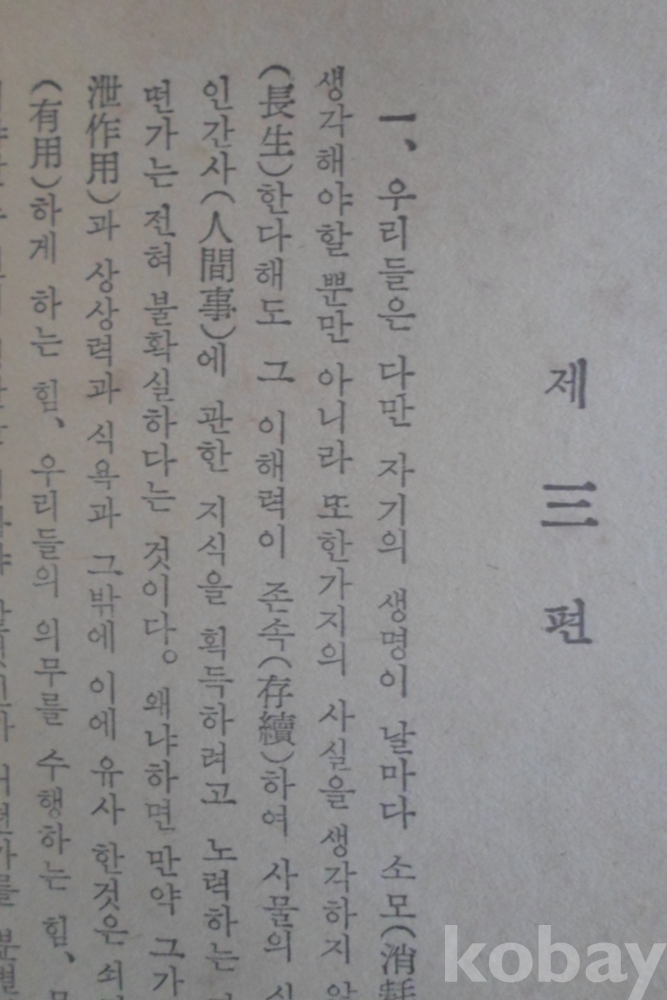 제 三 편
一、우리들은 다만 자기의 생명이 날마다 소모(消耗
생각해야할 뿐만 아니라 또한가지의 사실을 생각하지
(長生)한다해도 그 이해력이 존속(存續)하여 사물의
인간사(人間事)에 관한 지식을 획득하려고 노력하는
떤가는 전혀 불확실하다는 것이다。왜냐하면 만약 그가
泄作用)과 상상력과 식욕과 그밖에 이에 유사 한것은
(有用)하게 하는 힘、우리들의 의무를 수행하는 힘、
kobay